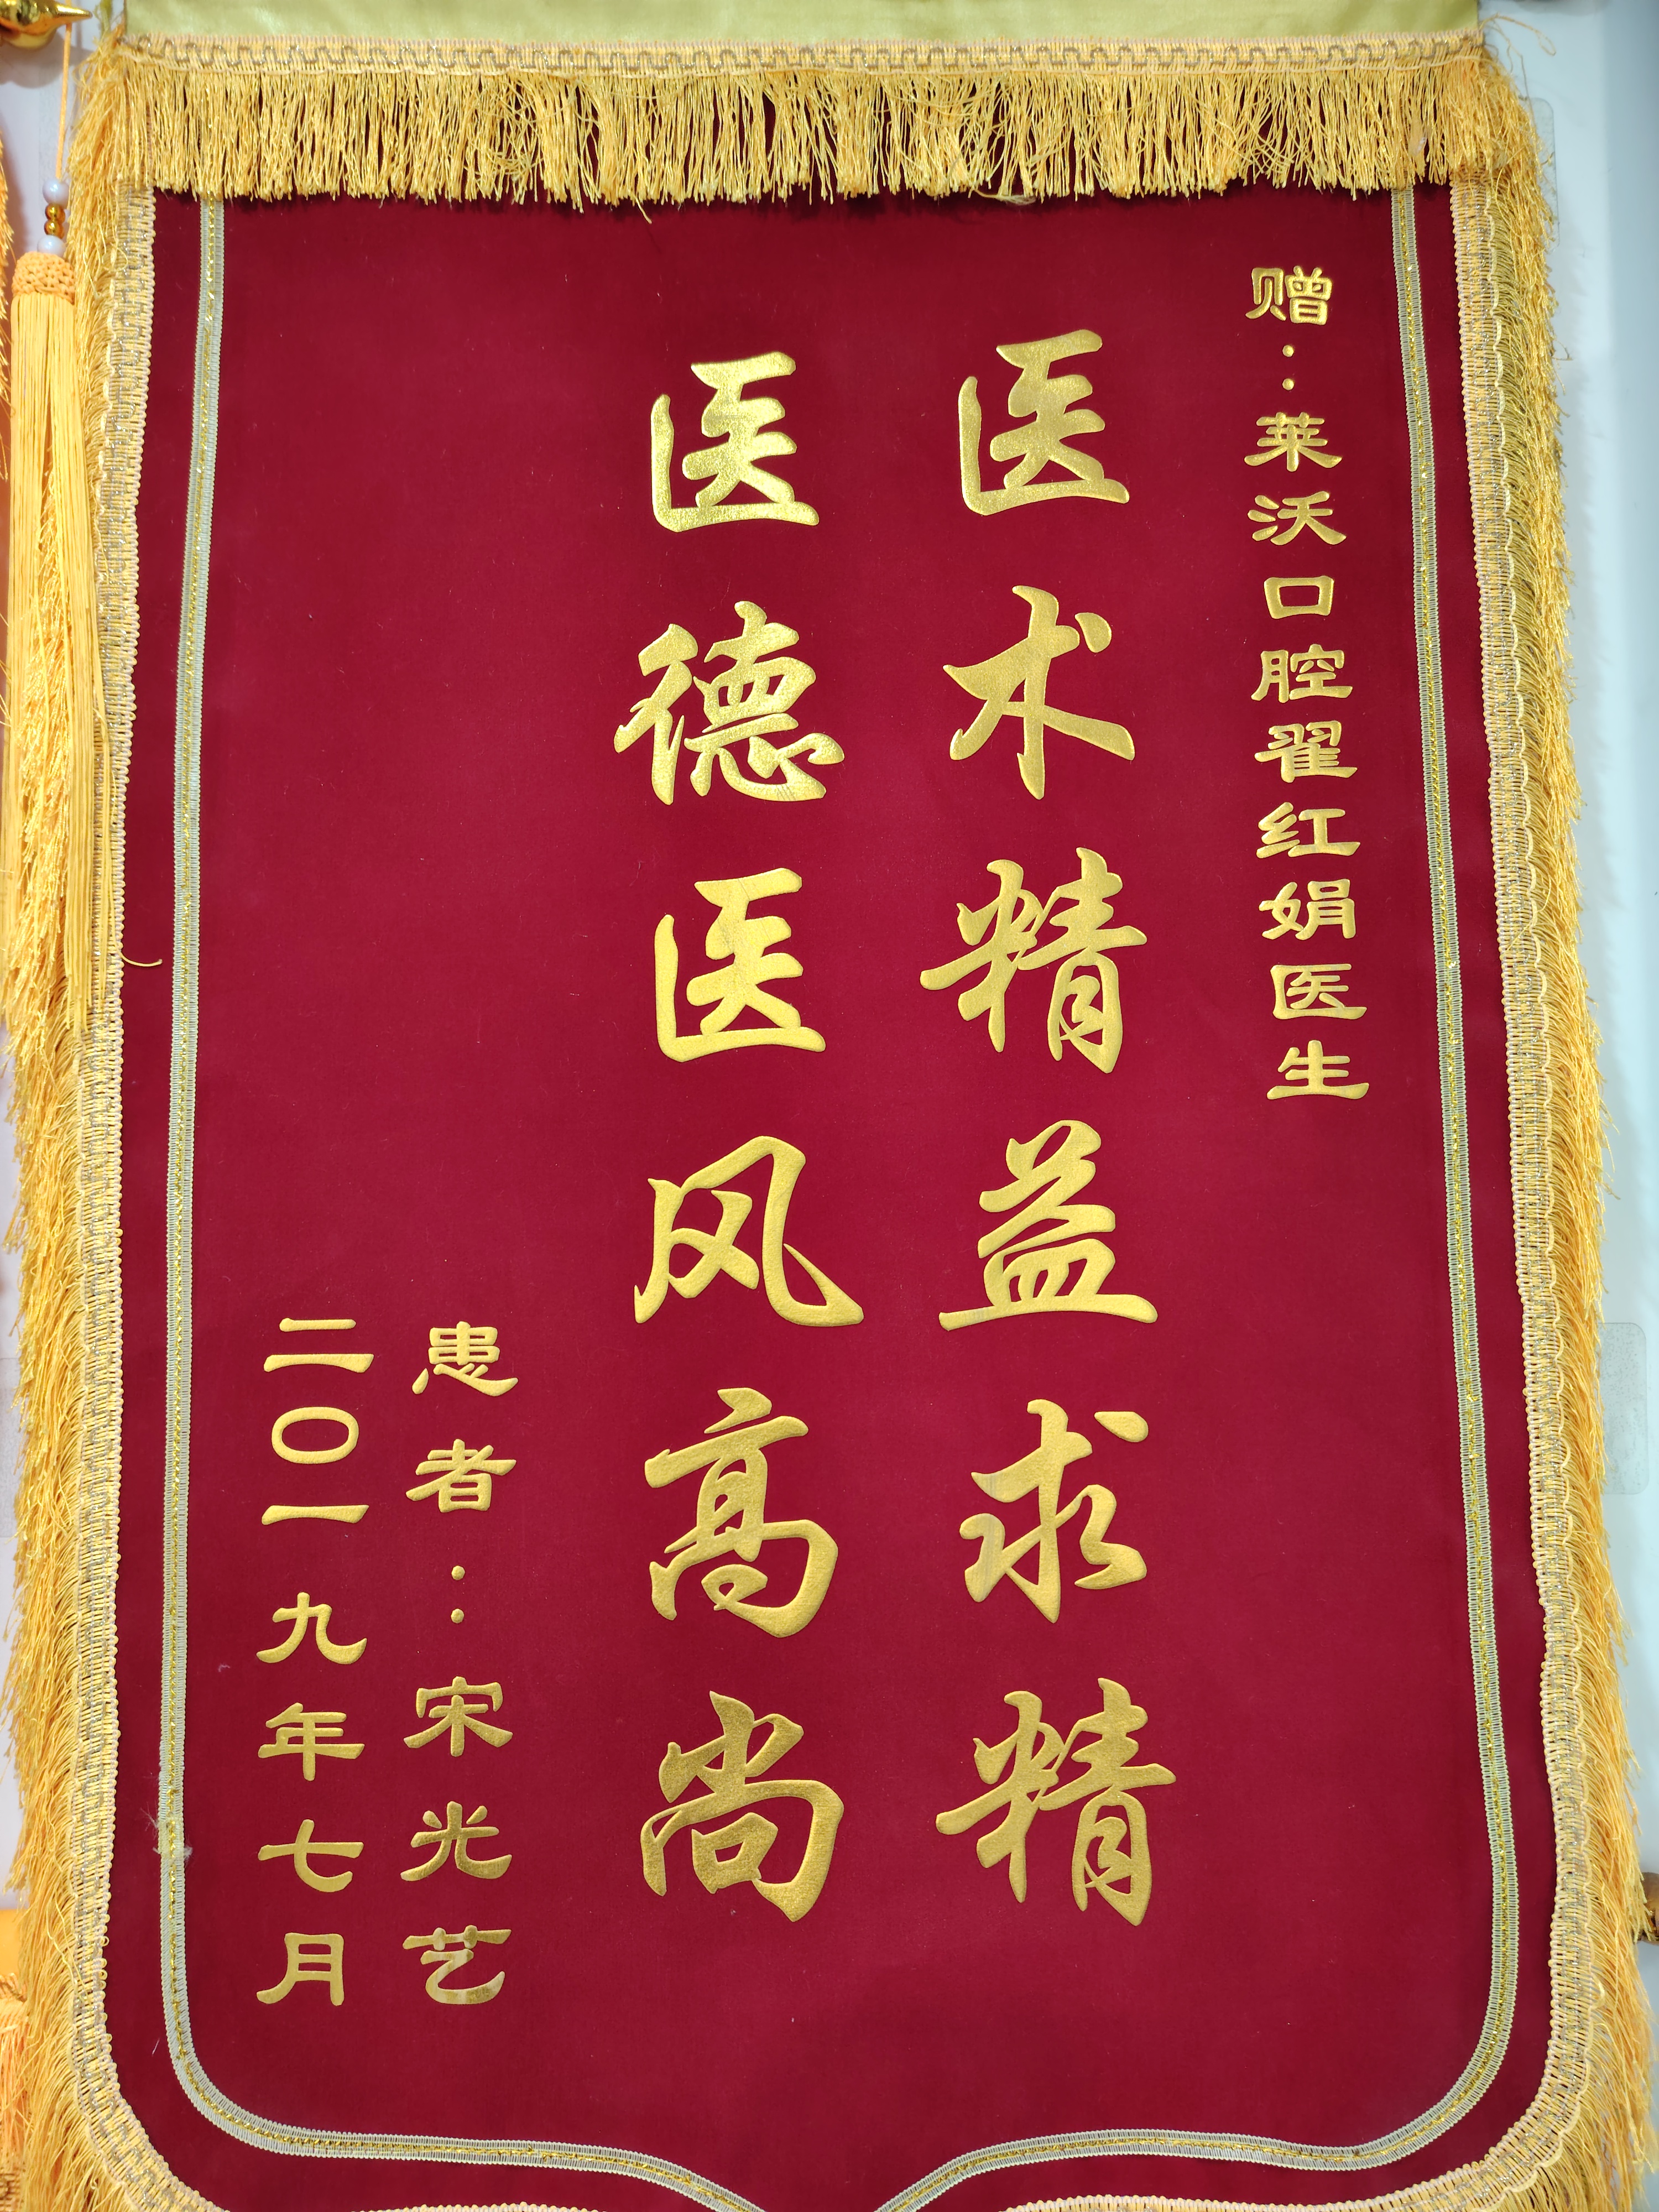 赠：莱沃口腔翟红娟医生
医术精益求精
医德医风高尚
患者：宋光艺
二〇一九年七月